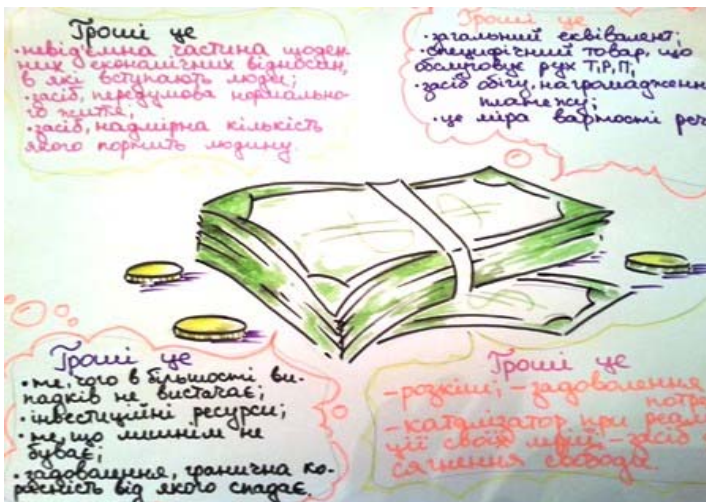 Гроші це
• невід'ємна частина щоден-
них економічних відносин,
в які вступають люди;
• засіб, передумова нормально-
го життя;
• засіб, надмірна кількість
якого портить людину.
Гроші це
• загальний еквівалент;
• специфічний товар, що
обслуговує рух Т,Р,П;
• засіб обігу, нагромадженн
платежу;
• це міра вартості реч
Гроші це
• те, чого в більшості ви-
падків не вистачає;
• інвестиційні ресурси;
• те, що лишнім не
буває;
• задоволення, гранична ко-
рисність від якого спадає.
Гроші це
– розкіш; – задоволення
потре
– каталізатор при реалі
ції своїх мрій; – засіб
сягнення свободи.